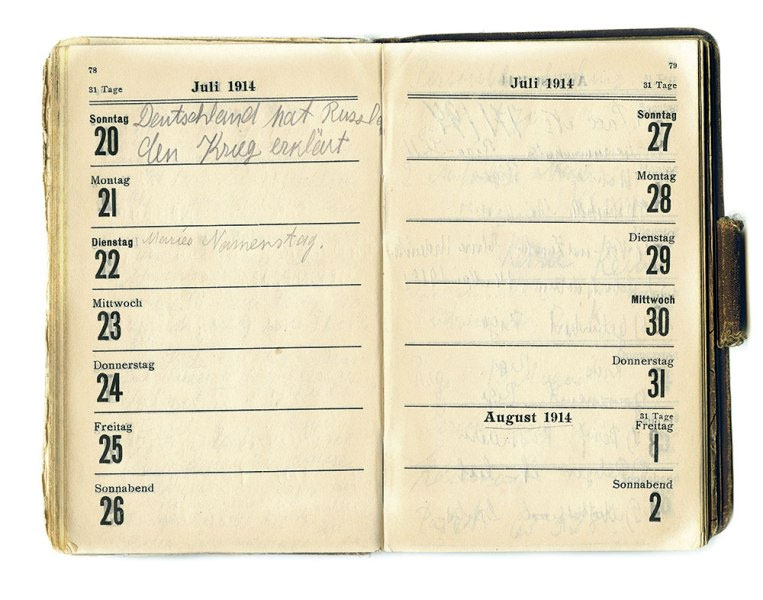 78
31 Tage
Juli 1914
Sonntag
20
Deutschland hat
den Krieg erklärt
Montag
21
Dienstag
22
Maries Namenstag.
Mittwoch
23
Donnerstag
24
Freitag
25
Sonnabend
26
79
Juli 1914
31 Tage
Sonntag
27
Montag
28
Dienstag
29
Mittwoch
30
Donnerstag
31
August 1914
31 Tage
Freitag
1
Sonnabend
2